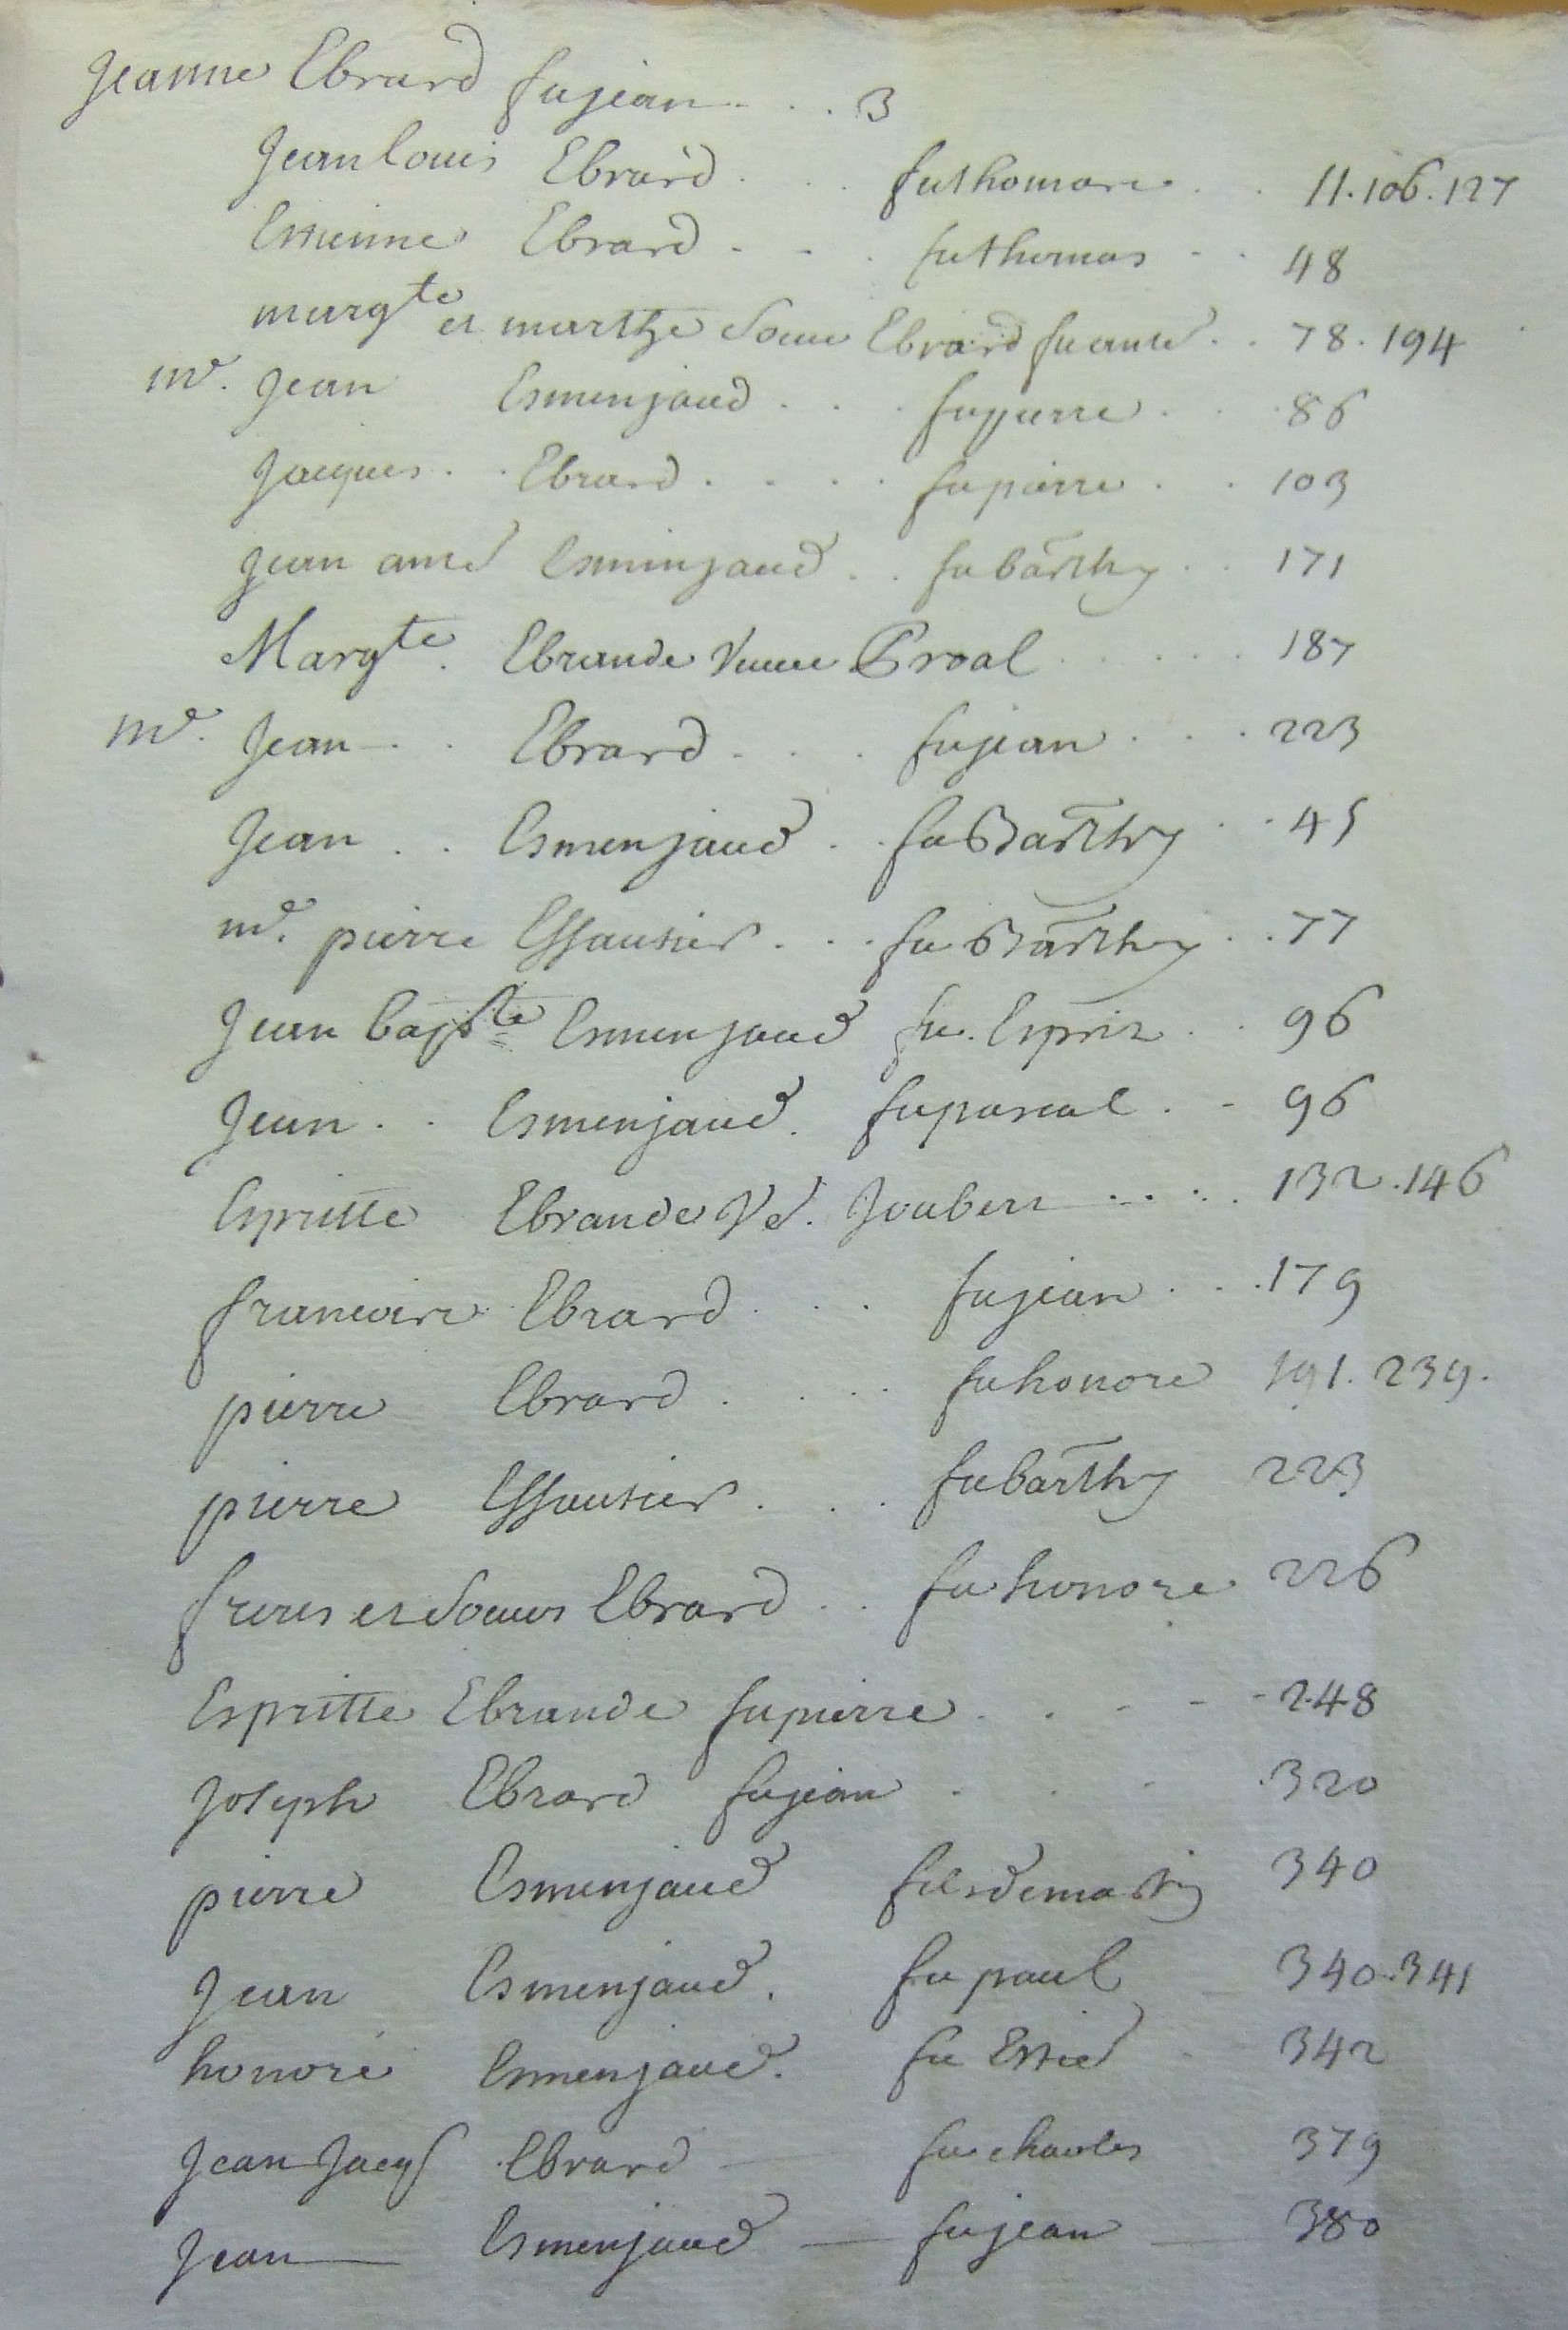 Jeanne Ebrard fu jean . . . 3
Jean louis Ebrard . . . fu thomas . . 11. 106. 127
Estienne Ebrard . . . fu thomas . . 48
margte et marthe soeurs Ebrard fu anté . . 78. 194
me. Jean Esmenjaud . . . fu pierre . . 86
Jacques . . Ebrard . . . . fu pierre . . 103
jean anté Esminjaud . . fu barthy . . 171
Margte. Ebrarde veuve Proal . . . . . 187
me. Jean . . Ebrard . . . fu jean . . . 223
Jean . . Esmenjaud . . fu Barthy . . 45
me. pierre Essautier . . . fu Barthy . . 77
Jean bapste Esmenjaud fu. Esprit . . 96
Jean . . Esmenjaud. fu pascal . - 96
Espritte Ebrarde Ve. Joubert . . . . 132. 146
francois Ebrard . . . fu jean . . . 179
pierre Ebrard . . . . fu honoré 191. 239.
pierre Essautier . . . fu barthy 223
freres et soeurs Ebrard . . fu honoré 226
Espritte Ebrarde fu pierre . . - - - 248
Joseph Ebrard fu jean . . . . 320
pierre Esmenjaud fils de martin 340
Jean Esmenjaud. fu paul 340. 341
honoré Esmenjaud. fu Estie 342
Jean Jacqs Ebrard — fu charles 379
Jean — Esmenjaud — fu jean — 380